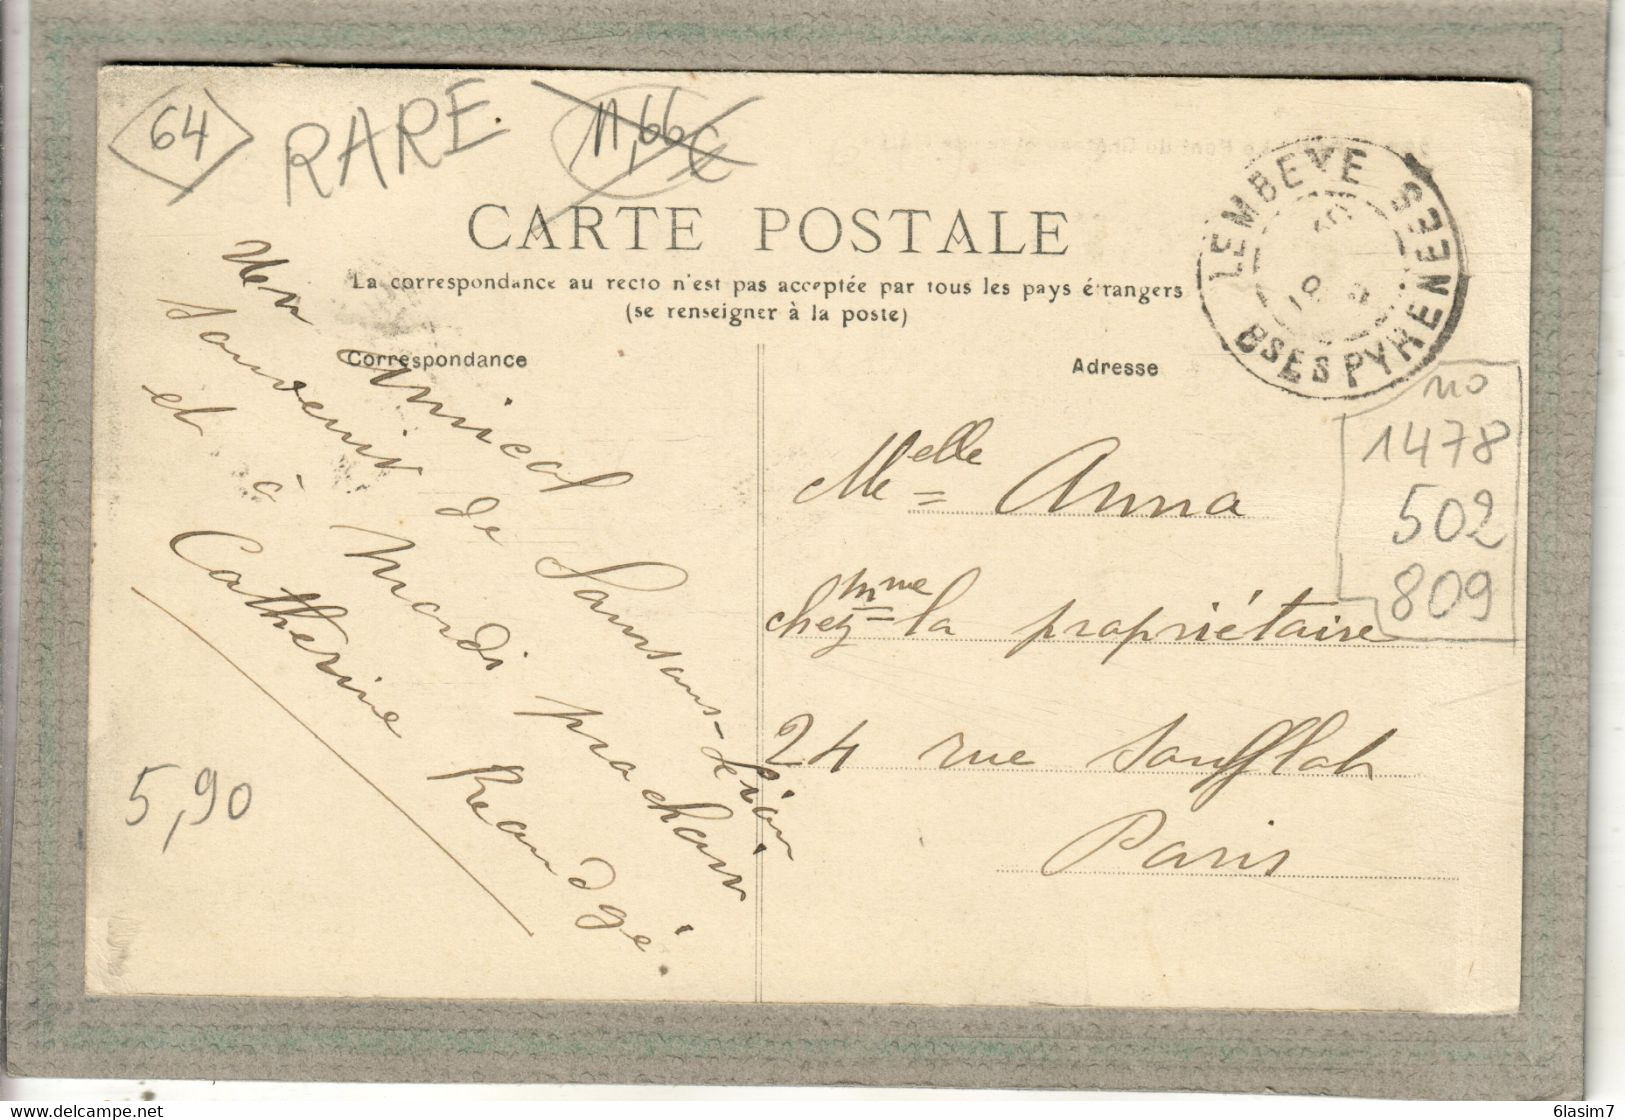 64
RARE.
11,66 €
CARTE POSTALE
La correspondance au recto n'est pas acceptée par tous les pays étrangers
(se renseigner à la poste)
Correspondance
Adresse
LEMBEYE
BSES PYRENEES
Un amical
souvenir de Sansons-Lion
et à Mardi prochain
Catherine
Melle Anna
chez Mme la propriétaire
24 rue Soufflot
Paris
no
1478
502
809
5,90
www.delcampe.net
6lasim7